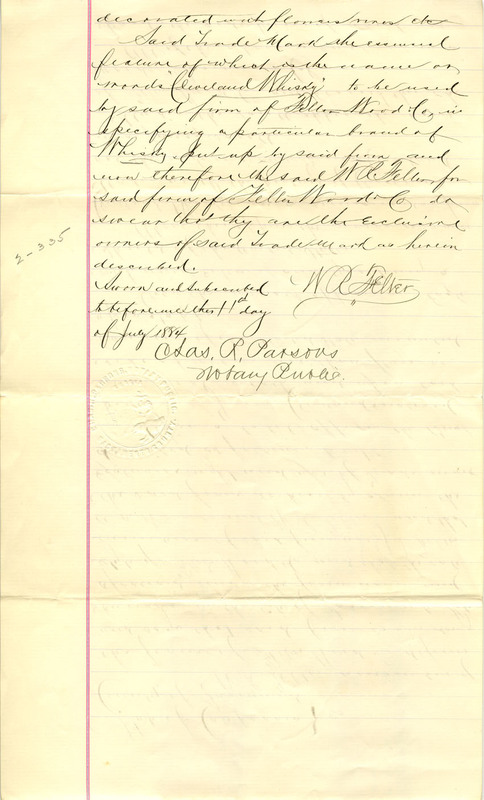 decorated with flowers vines etc
Said Trade Mark the essencial
feature of which is the name or
words "Cleveland Whisky" to be used
by said firm of Felter Wood & Co, in
specifying a particular brand of
Whisky put up by said firm and
now therefore the said W R Felter, for
said firm of Felter Wood & Co do
swear that they are the exclusive
owners of said Trade Mark as herein
described.
Sworn and subscribed
to before me this 11th day
of July 1884
W R Felter
Chas. R. Parsons
Notary Public.
2-335